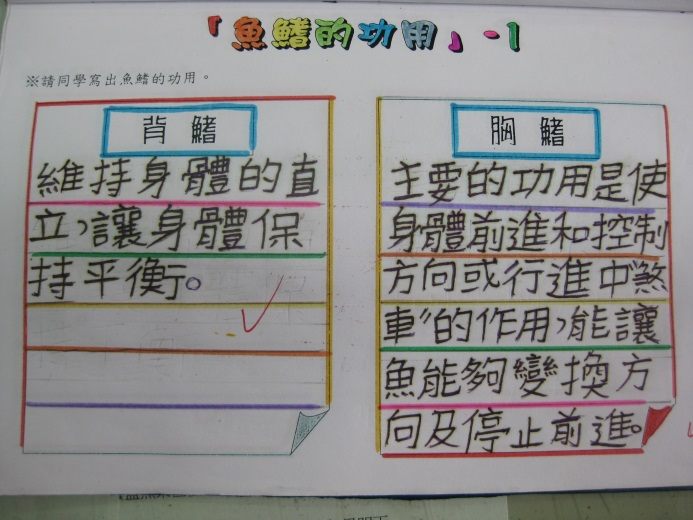 「魚鰭的功用」-1
※請同學寫出魚鰭的功用。
背鰭
維持身體的直
立,讓身體保
持平衡。
胸鰭
主要的功用是使
身體前進和控制
方向或行進中煞
車”的作用,能讓
魚能夠變換方
向及停止前進。